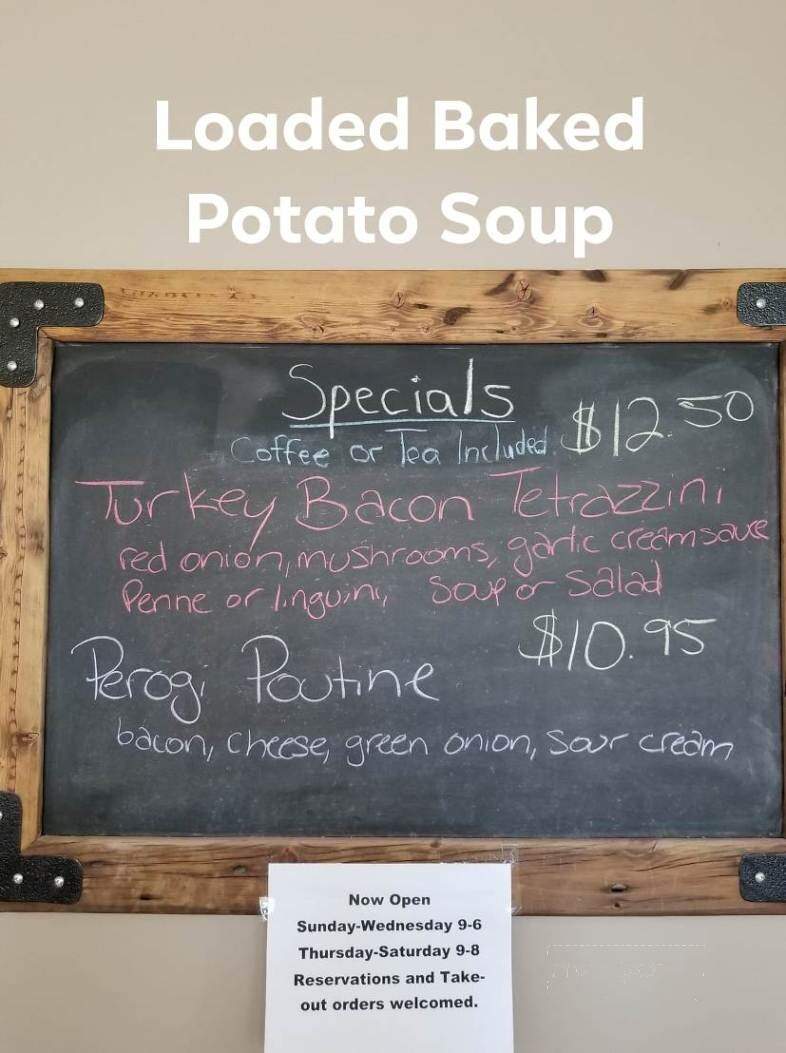 Loaded Baked
Potato Soup
Specials
Coffee or Tea Included $12.50
Turkey Bacon Tetrazzini
red onion, mushrooms, garlic cream sauce
Penne or linguini, Soup or Salad
$10.95
Perogi Poutine
bacon, cheese, green onion, sour cream
Now Open
Sunday-Wednesday 9-6
Thursday-Saturday 9-8
Reservations and Take-
out orders welcomed.